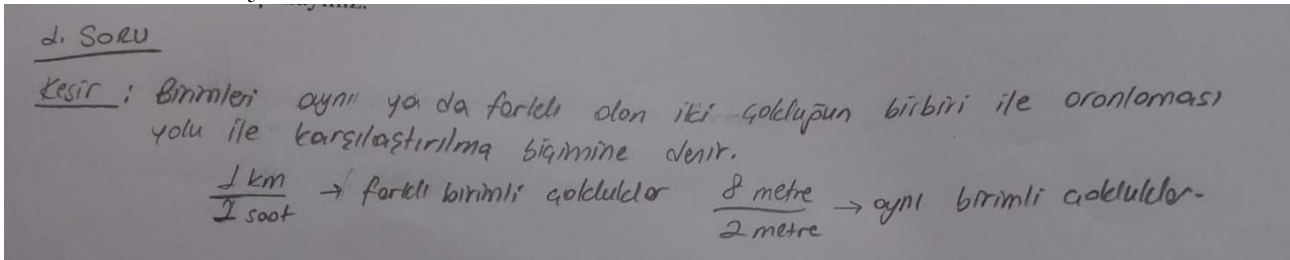 1. SORU
Kesir : Birimleri aynı ya da farklı olan iki çokluğun birbiri ile oranlaması
yolu ile karşılaştırılma biçimine denir.
1 km / 2 saat → farklı birimli çokluklar 8 metre / 2 metre → aynı birimli çokluklar.